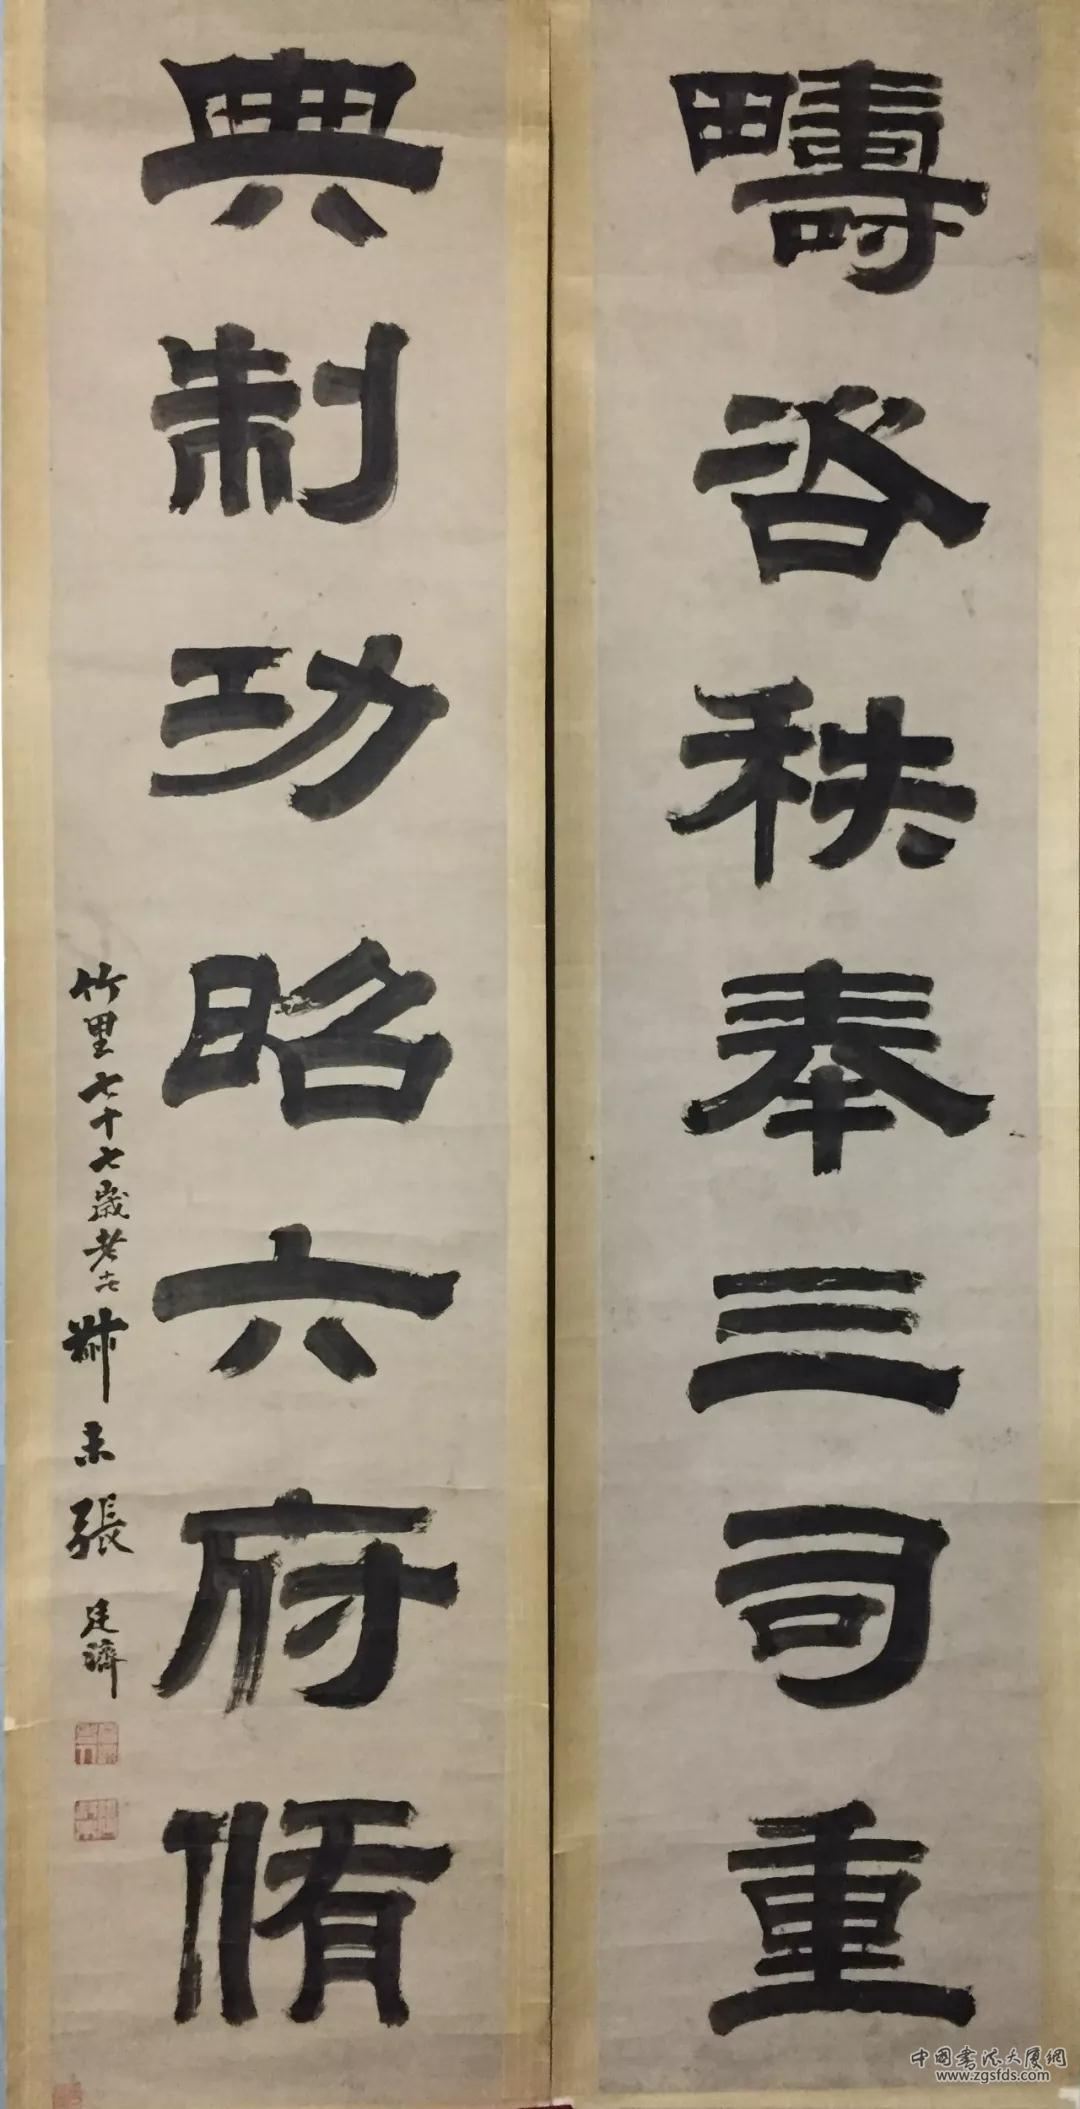 疇咨秩奉三司重
典制功昭六府脩
竹里七十七歲老者
叔未張廷濟
中国书法大厦网
www.zgsfds.com